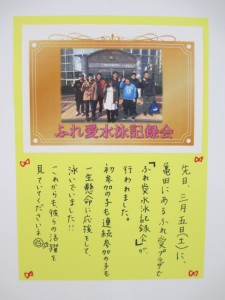 ふれ愛水泳記録会
先日、三月五日(土)に、
亀田にあるふれ愛プラザで
「ふれ愛水泳記録会」が
行われました。
初参加の子も連続参加の子も
一生懸命に応援をして、
泳いでいました!!
これからも彼らの活躍を
見ていてくださいネ